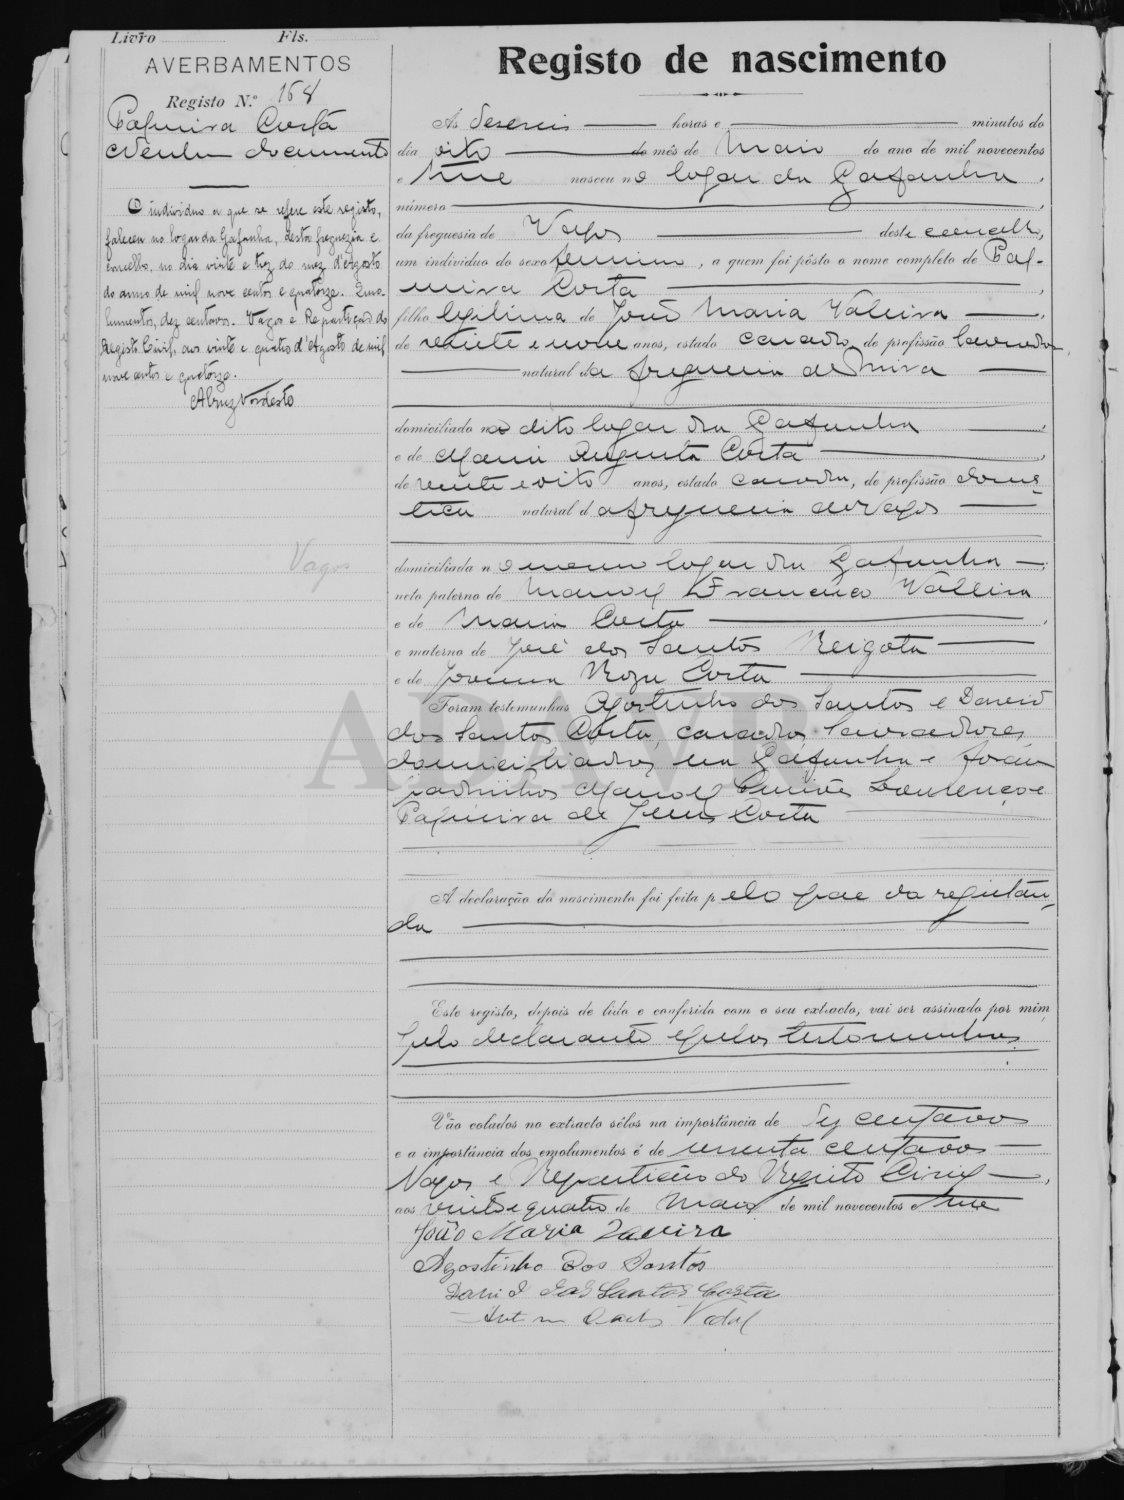 Livro Fls.
AVERBAMENTOS
Registo N.º 168
Palmira Costa
Nenhum documento
O individuo a que se refere este registo,
faleceu no logar da Gafanha, desta freguezia e
concelho, no dia vinte e trez do mez d'Agosto
do anno de mil nove centos e quatorze. Emo-
lumentos, dez centavos. Vagos e Repartição do
Registo Civil, aos vinte e quatro d'Agosto de mil
nove centos e quatorze.
Vagos
Registo de nascimento
As deseseis horas e minutos do
dia oito do mês de Maio do ano de mil novecentos
e treze nasceu no logar da Gafanha,
número
da freguesia de Vagos deste concelho,
um indivíduo do sexo feminino, a quem foi pôsto o nome completo de Pal-
mira Costa,
filha legitima de João Maria Valeira,
de vinte e nove anos, estado casado, de profissão lavrador,
natural da freguesia de Mira
domiciliado no dito logar da Gafanha,
e de Maria Augusta Costa,
de vinte e oito anos, estado casada, de profissão domes-
tica natural da freguesia de Vagos
domiciliada no mesmo logar da Gafanha,
neto paterno de Manoel Francisco Valeira
e de Maria Costa,
e materno de José dos Santos Reigota
e de Joanna Roza Costa
Foram testemunhas Agostinho dos Santos e David
dos Santos Costa, casados, lavradores,
domiciliados na Gafanha e foram
padrinhos Manoel Lourenço e
Palmira de Jesus Costa
A declaração do nascimento foi feita pelo pae da registan-
da
Este registo, depois de lido e conferido com o seu extracto, vai ser assinado por mim
pelo declarante e pelas testemunhas.
Vão colados no extracto sêlos na importância de centavos
e a importância dos emolumentos é de sessenta centavos
Vagos e Repartição do Registo Civil,
aos vinte e quatro de Maio de mil novecentos e treze
João Maria Valeira
Agostinho Dos Santos
David dos Santos Costa
Vidal
ADAVR